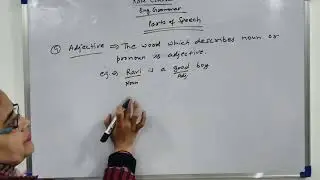 Eng Grammar
Parts of Speech
⑤ Adjective ⇒ The word which describes noun or
pronoun is adjective.
eg ⇒ Ravi is a good boy
Noun Adj